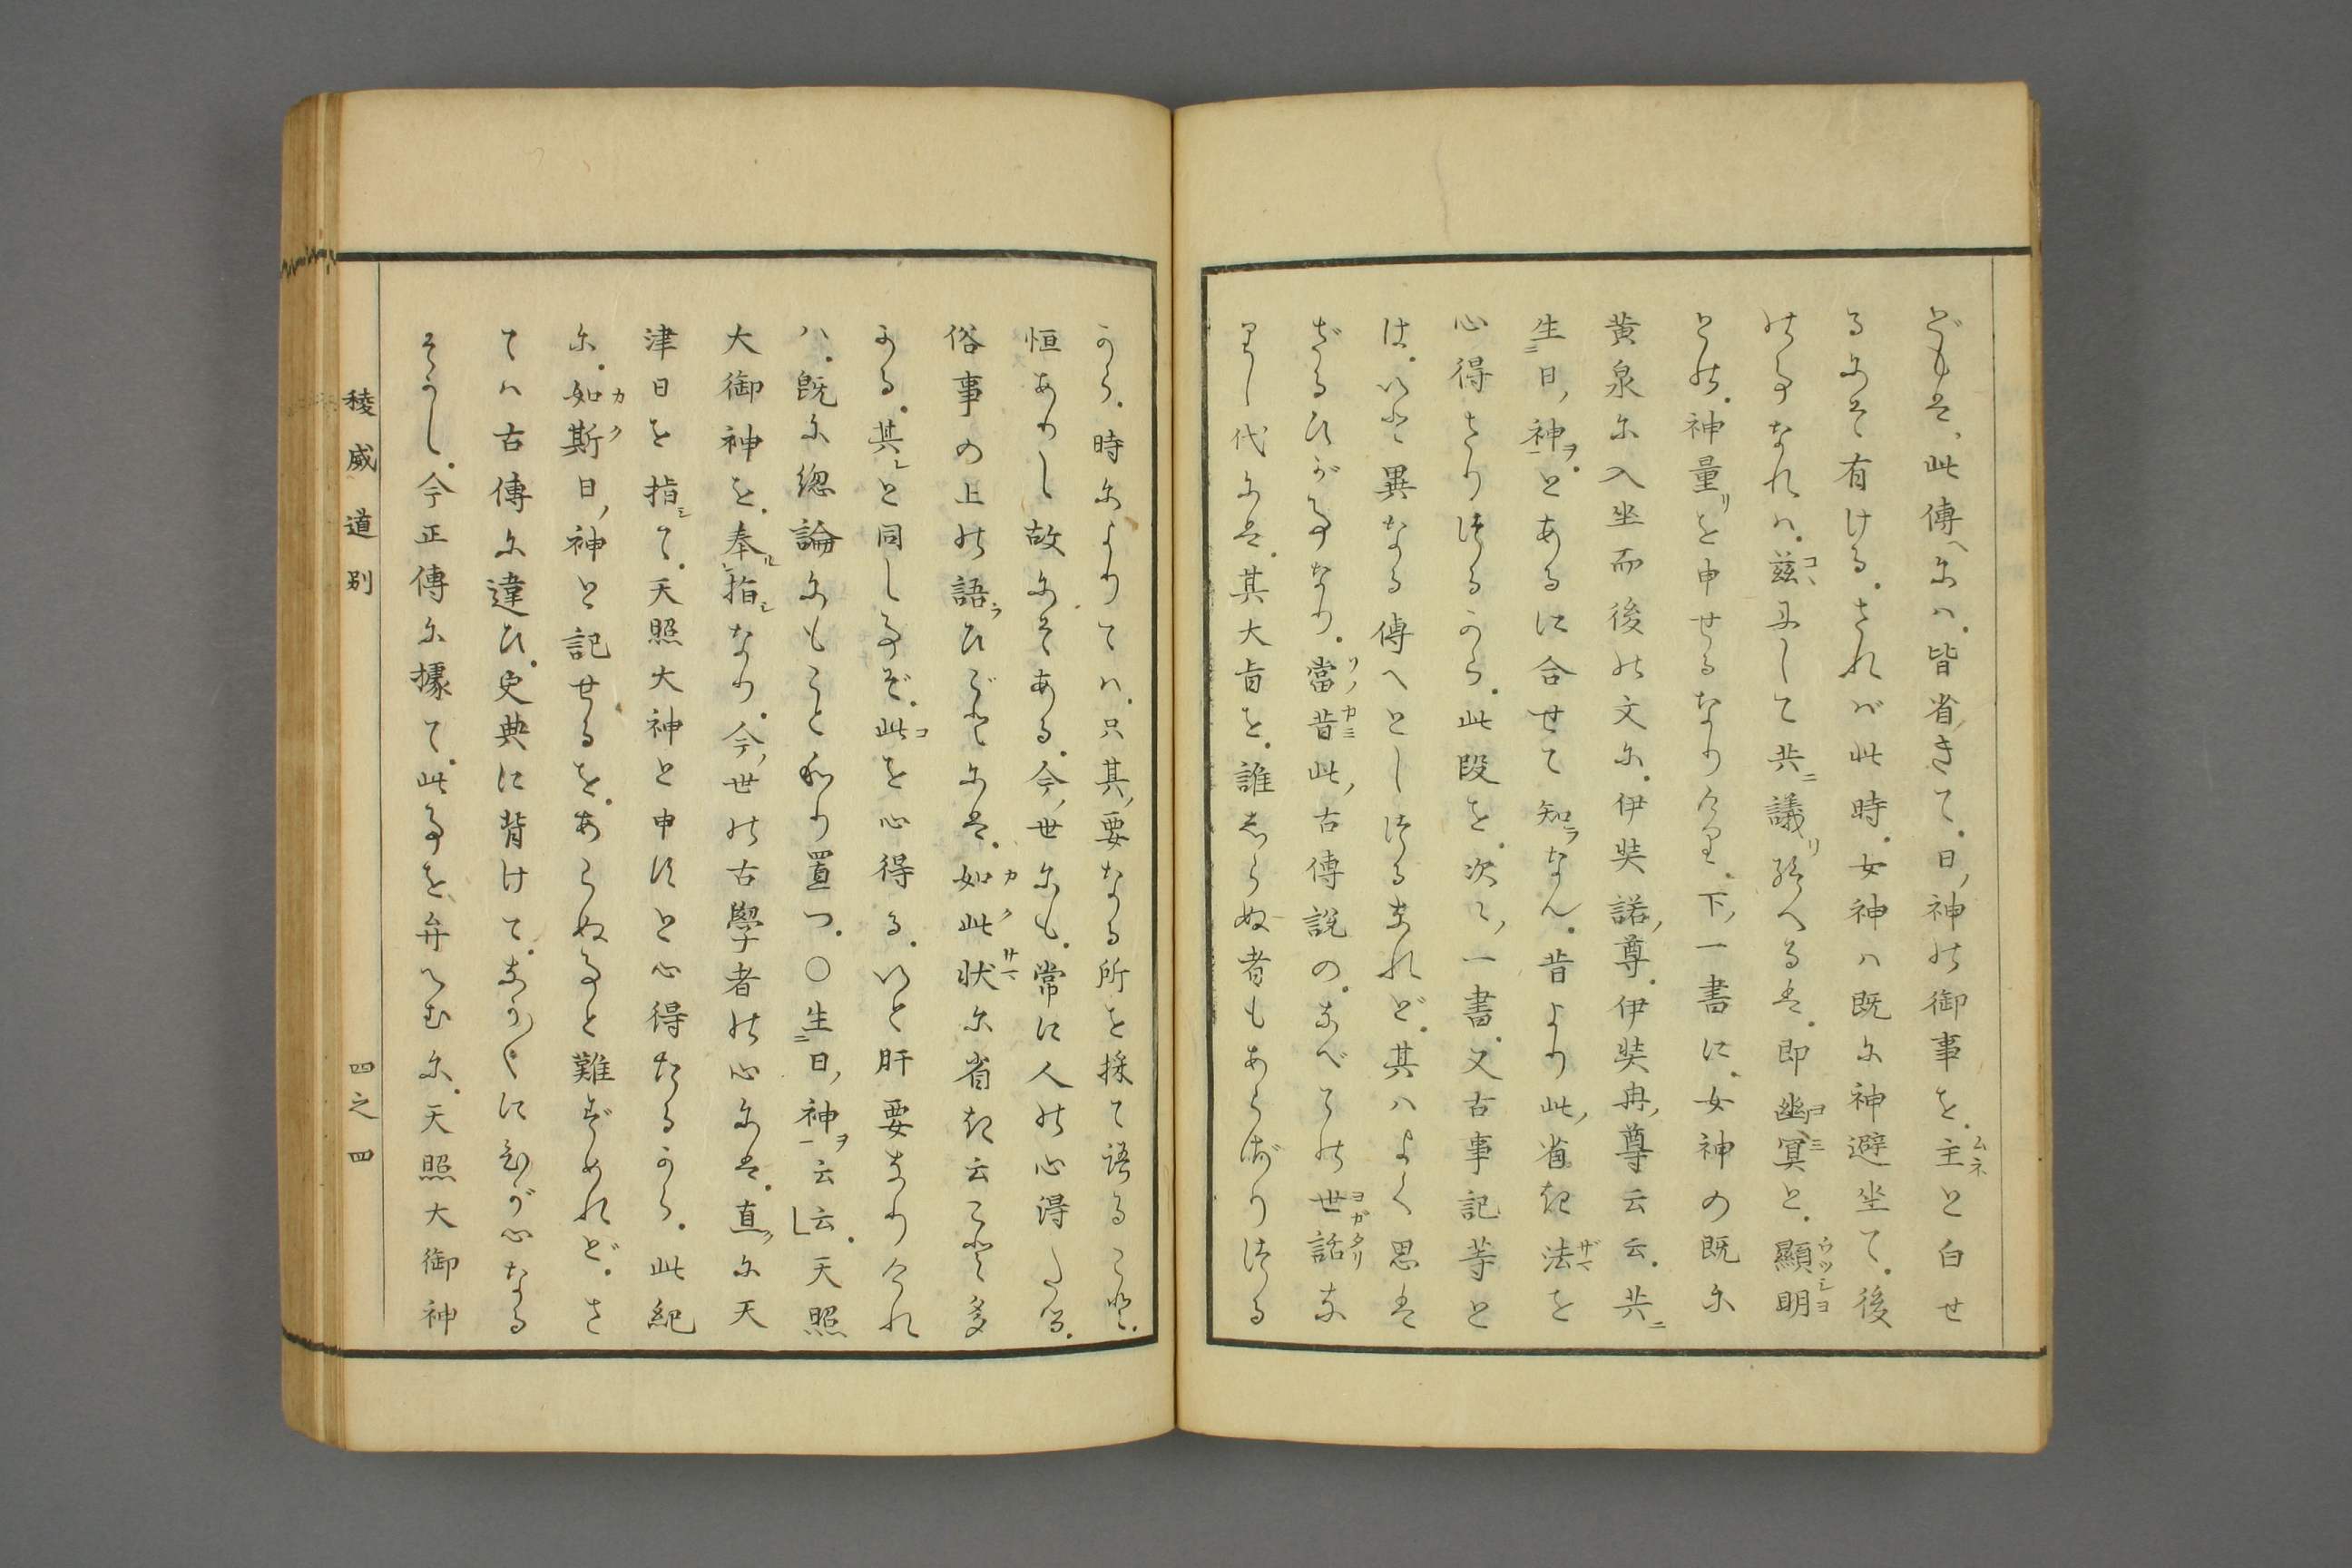 どもそ、此傳ヘにハ。皆省きて。日ノ神の御事を。主ムネと白せ
るにそ有ける。されバ此時。女神ハ既に神避坐て。後
の事なれハ。茲コヽよして共ニ議リ給へるは。即幽冥コミと。顯明ウツシヨ
との。神量リを申せるなりけり。下ノ一書に。女神の既に
黄泉に入坐而後の文に。伊弉諾ノ尊。伊弉冉ノ尊云云。共ニ
生ニ日ノ神一ヲ。とあるに合せて知ラなん。昔より此ノ省き法ザマを
心得さりけるから。此段を。次々ノ一書。又古事記等と
は。いと異なる傳へとしけるなれど。其ハよく思は
ざるひが事なり。當昔ソノカミ此ノ古傳説の。なべての世話ヨガタリな
りし代には。其大旨を。誰しらぬ者もあらざりける
から。時によりてハ。只其ノ要なる所を採て語ること。
恒ありし故にそある。今ノ世にも。常に人の心得たる。
俗事の上の語ラひごとには。如此カク状サマに省き云こと多
かる。其レと同し事ぞ。此コを心得る。いと肝要なりけれ
ハ。既に總論にもこと和り置つ。○生ニ日ノ神一ヲ云云。天照
大御神を。奉レ指シなり。今ノ世の古學者の心には。直ヾに天
津日を指シて。天照大神と申すと心得たるから。此紀
に。如斯カク日ノ神と記せるを。あらぬ事と難ざめれど。さ
てハ古傳に違ひ。史典に背けて。なか〳〵にひが心なる
そかし。今正傳に據て。此事を弁へむに。天照大御神
稜威道別
四之四